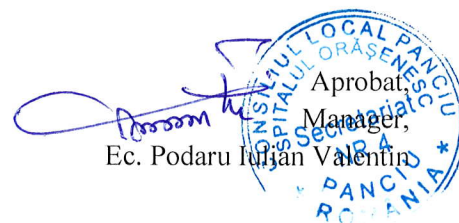 Aprobat,
Manager,
Ec. Podaru Iulian Valentin
CONSILIUL LOCAL PANCIU
SPITALUL ORĂȘENESC
Secretariat
NR 4
* PANCIU *
ROMÂNIA